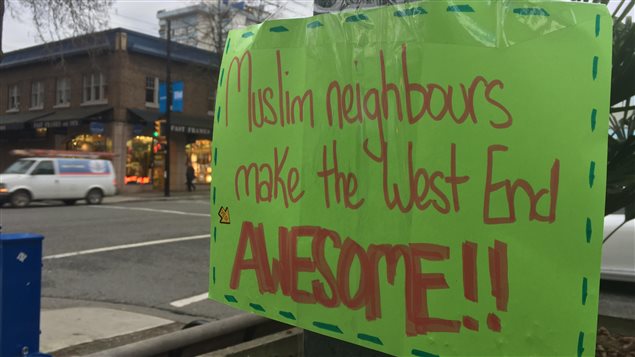 Muslim neighbours
make the West End
AWESOME!!
FAST FRAMES